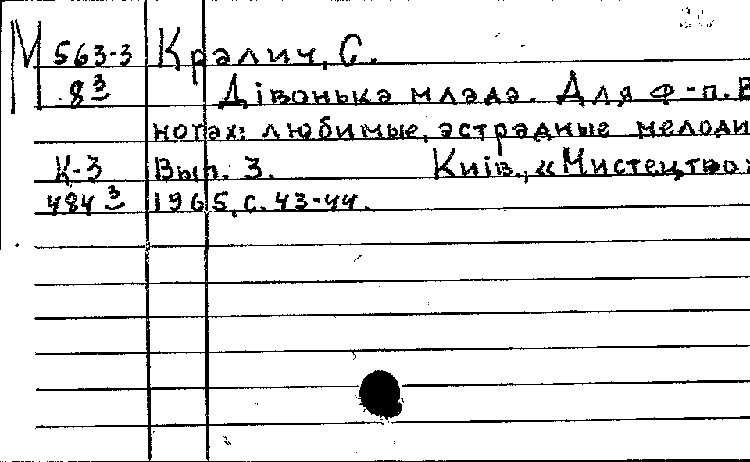 М 563-3 Кралич, С.
8³ Дівонька млада. Для ф-п. В
нотах: любимые, эстрадные мелоди
К-3 Вып. 3. Киів, «Мистецтво»
484³ 1965, с. 43-44.